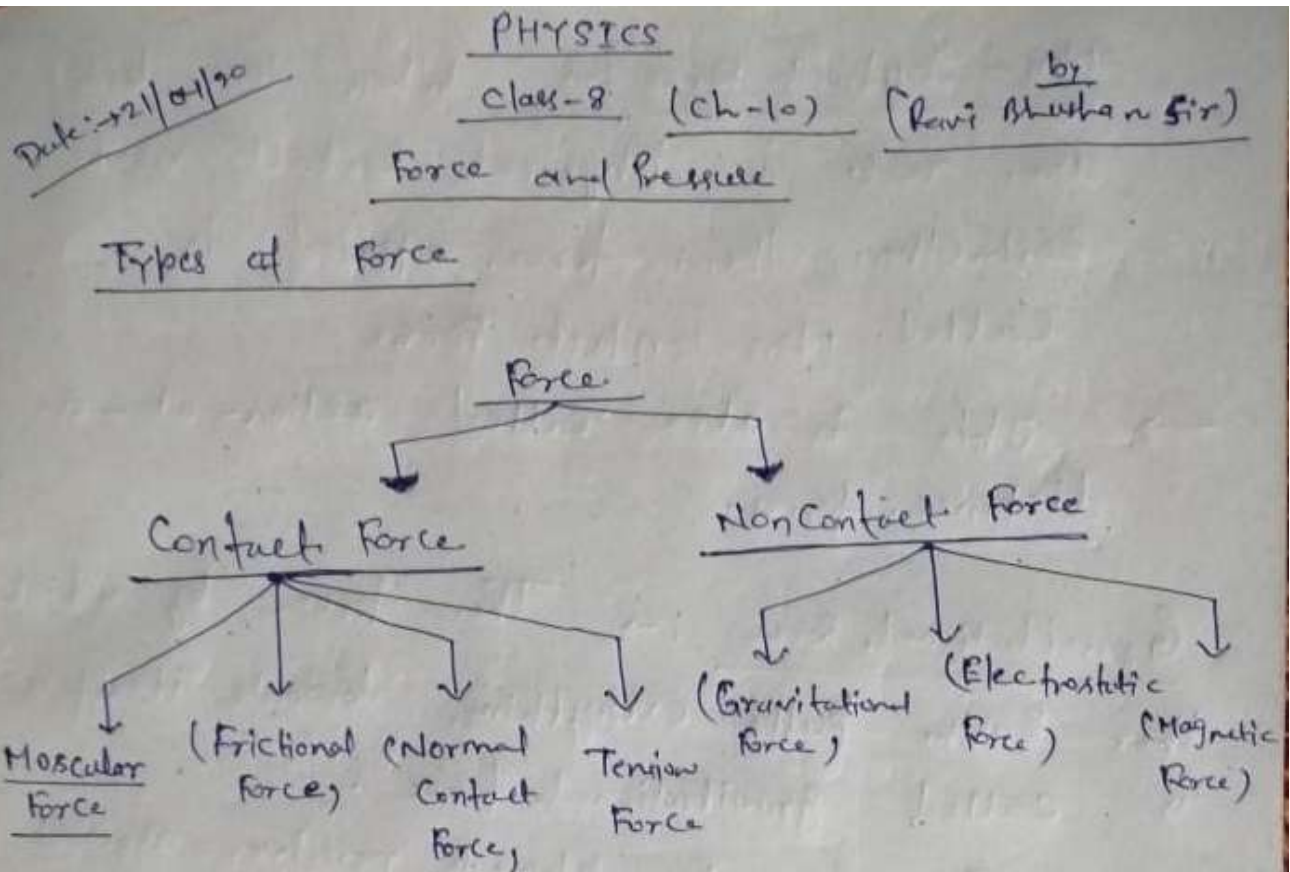 PHYSICS
Date :→ 21/04/20
Class-8 (Ch-10)
by
(Ravi Bhushan Sir)
Force and Pressure
Types of Force
Force
Contact Force
Non Contact Force
Moscular
Force
(Frictional
Force)
(Normal
Contact
Force)
Tension
Force
(Gravitational
Force)
(Electrostatic
Force)
(Magnetic
Force)